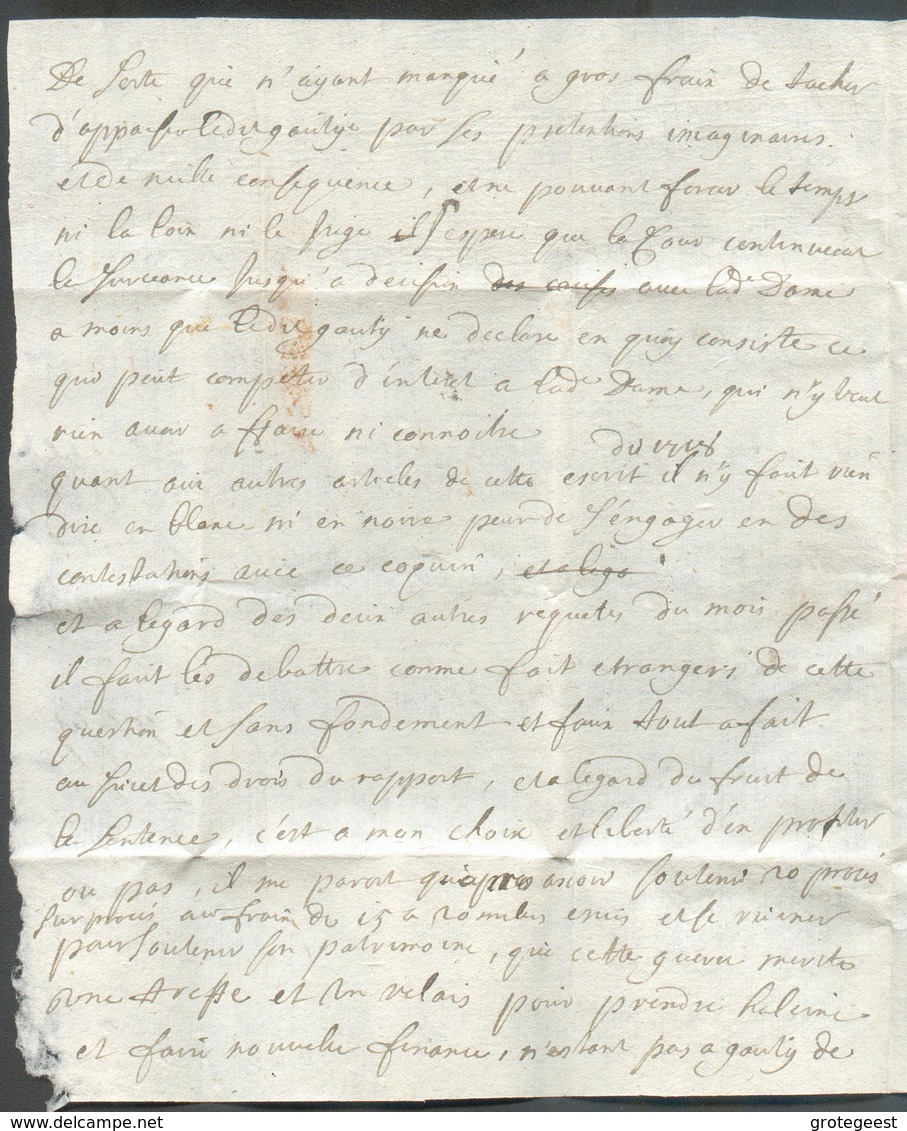 De sorte que n'ayant manqué a gros frain de tacher
d'appaiser ledit gautije par ses pretentions imaginaires
et de nulle consequence, et ne pouvant forcer le temps
ni la loix ni le Juge il espere que la Cour continuerat
la surceance Jusqu'a decision des causes avec lad.e Dame
a moins que ledit gautij ne declare en quoy consiste ce
qui peut competer d'interet a lad.e Dame, qui n'y veut
rien avoir a ffaire ni connoitre
quant aux autres articles de cette escrit du il n'y faut rien
dire en blanc ni en noire peur de s'engager en des
contestations avec ce coquin,
et a legard des deux autres requetes du mois passé
il faut les debattre comme fait etrangers de cette
question et sans fondement et faux tout a fait
au sujet des drois du rapport, et a legard du fruit de
la sentence, c'est a mon choix et liberté d'en profiter
ou pas, il me paroit qu'apres avoir soutenu 20 procés
sur procés au frain de 15 a 20 milles ecus et se ruiner
pour soutenir son patrimoine, que cette guerre merite
une treffe et un relais pour prendre haleine
et faire nouvelle finance, n'estant pas a gautij de
delcampe.net
grotegeest